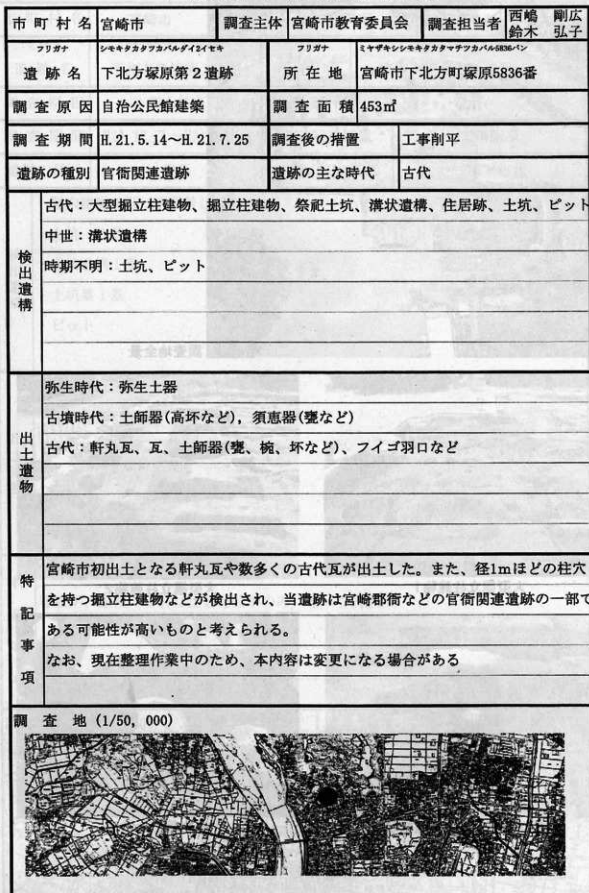 市町村名 宮崎市 調査主体 宮崎市教育委員会 調査担当者 西嶋 剛広
鈴木 弘子
フリガナ シモキタカタツカバルダイ2イセキ フリガナ ミヤザキシシモキタカタマチツカバル5836バン
遺跡名 下北方塚原第2遺跡 所在地 宮崎市下北方町塚原5836番
調査原因 自治公民館建築 調査面積 453㎡
調査期間 H.21.5.14～H.21.7.25 調査後の措置 工事削平
遺跡の種別 官衙関連遺跡 遺跡の主な時代 古代
検出遺構
古代：大型掘立柱建物、掘立柱建物、祭祀土坑、溝状遺構、住居跡、土坑、ピット
中世：溝状遺構
時期不明：土坑、ピット
出土遺物
弥生時代：弥生土器
古墳時代：土師器(高坏など)，須恵器(甕など)
古代：軒丸瓦、瓦、土師器(甕、椀、坏など)、フイゴ羽口など
特記事項
宮崎市初出土となる軒丸瓦や数多くの古代瓦が出土した。また、径1mほどの柱穴
を持つ掘立柱建物などが検出され、当遺跡は宮崎郡衙などの官衙関連遺跡の一部で
ある可能性が高いものと考えられる。
なお、現在整理作業中のため、本内容は変更になる場合がある
調査地(1/50,000)